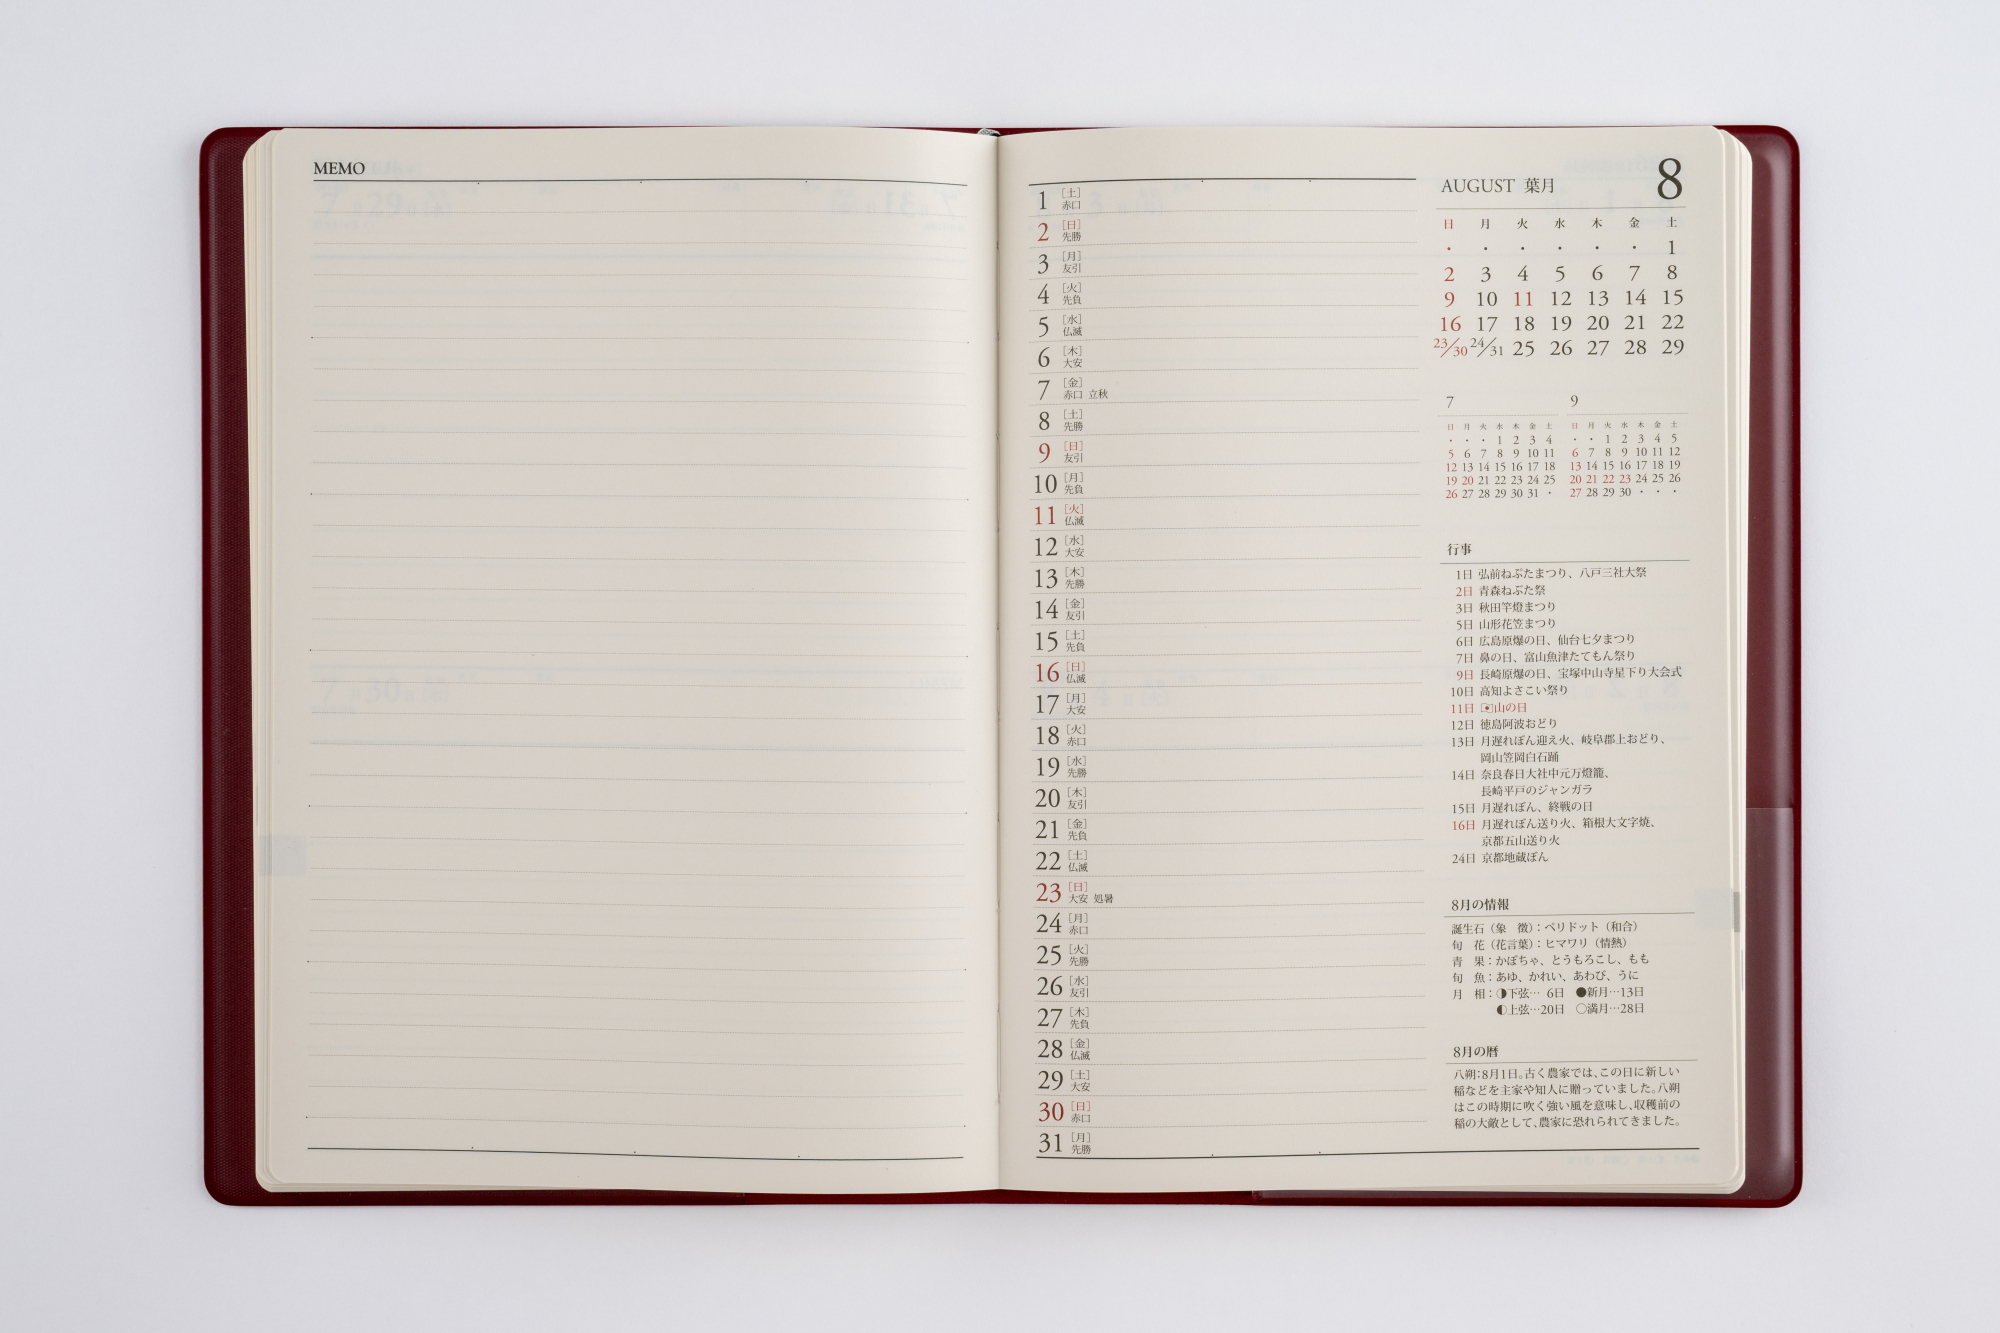 MEMO
1 [土] 赤口
2 [日] 先勝
3 [月] 友引
4 [火] 先負
5 [水] 仏滅
6 [木] 大安
7 [金] 赤口 立秋
8 [土] 先勝
9 [日] 友引
10 [月] 先負
11 [火] 仏滅
12 [水] 大安
13 [木] 先勝
14 [金] 友引
15 [土] 先負
16 [日] 仏滅
17 [月] 大安
18 [火] 赤口
19 [水] 先勝
20 [木] 友引
21 [金] 先負
22 [土] 仏滅
23 [日] 大安 処暑
24 [月] 赤口
25 [火] 先勝
26 [水] 友引
27 [木] 先負
28 [金] 仏滅
29 [土] 大安
30 [日] 赤口
31 [月] 先勝
AUGUST 葉月 8
日 月 火 水 木 金 土
・ ・ ・ ・ ・ ・ 1
2 3 4 5 6 7 8
9 10 11 12 13 14 15
16 17 18 19 20 21 22
23/30 24/31 25 26 27 28 29
7
日 月 火 水 木 金 土
・ ・ ・ 1 2 3 4
5 6 7 8 9 10 11
12 13 14 15 16 17 18
19 20 21 22 23 24 25
26 27 28 29 30 31 ・
9
日 月 火 水 木 金 土
・ ・ 1 2 3 4 5
6 7 8 9 10 11 12
13 14 15 16 17 18 19
20 21 22 23 24 25 26
27 28 29 30 ・ ・ ・
行事
1日 弘前ねぷたまつり、八戸三社大祭
2日 青森ねぶた祭
3日 秋田竿燈まつり
5日 山形花笠まつり
6日 広島原爆の日、仙台七夕まつり
7日 鼻の日、富山魚津たてもん祭り
9日 長崎原爆の日、宝塚中山寺星下り大会式
10日 高知よさこい祭り
11日 山の日
12日 徳島阿波おどり
13日 月遅れぼん迎え火、岐阜郡上おどり、
岡山笠岡白石踊
14日 奈良春日大社中元万燈籠、
長崎平戸のジャンガラ
15日 月遅れぼん、終戦の日
16日 月遅れぼん送り火、箱根大文字焼、
京都五山送り火
24日 京都地蔵ぼん
8月の情報
誕生石（象　徴）：ペリドット（和合）
旬　花（花言葉）：ヒマワリ（情熱）
青　果：かぼちゃ、とうもろこし、もも
旬　魚：あゆ、かれい、あわび、うに
月　相：◑下弦… 6日 ●新月…13日
◐上弦…20日 ○満月…28日
8月の暦
八朔：8月1日。古く農家では、この日に新しい
稲などを主家や知人に贈っていました。八朔
はこの時期に吹く強い風を意味し、収穫前の
稲の大敵として、農家に恐れられてきました。